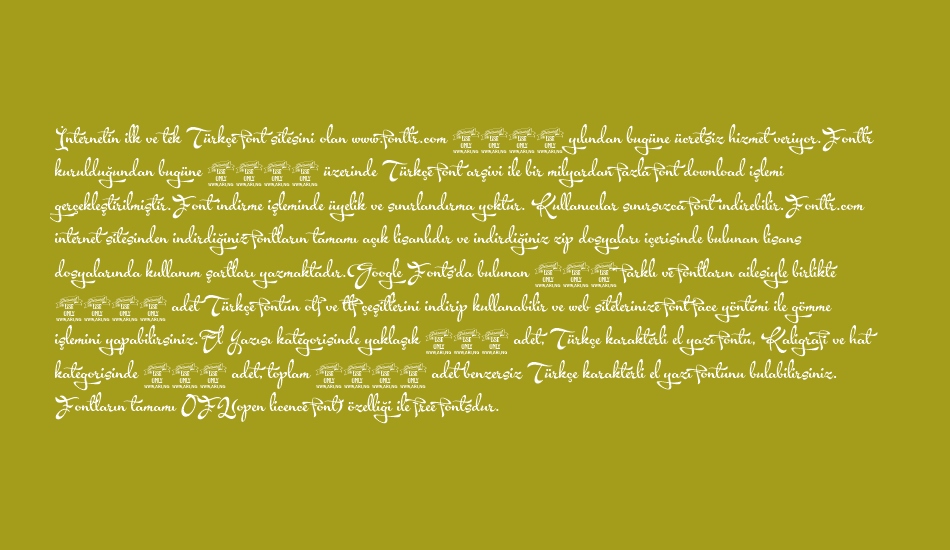 İnternetin ilk ve tek Türkçe font sitesini olan www.fonttr.com yılından bugüne ücretsiz hizmet veriyor. Fonttr
kurulduğundan bugüne üzerinde Türkçe font arşivi ile bir milyardan fazla font download işlemi
gerçekleştirilmiştir. Font indirme işleminde üyelik ve sınırlandırma yoktur. Kullanıcılar sınırsızca font indirebilir. Fonttr.com
internet sitesinden indirdiğiniz fontların tamamı açık lisanlıdır ve indirdiğiniz zip dosyaları içerisinde bulunan lisans
dosyalarında kullanım şartları yazmaktadır. Google Fonts'da bulunan farklı ve fontların ailesiyle birlikte
adet Türkçe fontun otf ve ttf çeşitlerini indirip kullanabilir ve web sitelerinize font face yöntemi ile gömme
işlemini yapabilirsiniz. El Yazısı kategorisinde yaklaşık adet, Türkçe karakterli el yazı fontu, Kaligrafi ve hat
kategorisinde adet, toplam adet benzersiz Türkçe karakterli el yazı fontunu bulabilirsiniz.
Fontların tamamı OFL(open licence font) özelliği ile free fonts'dur.